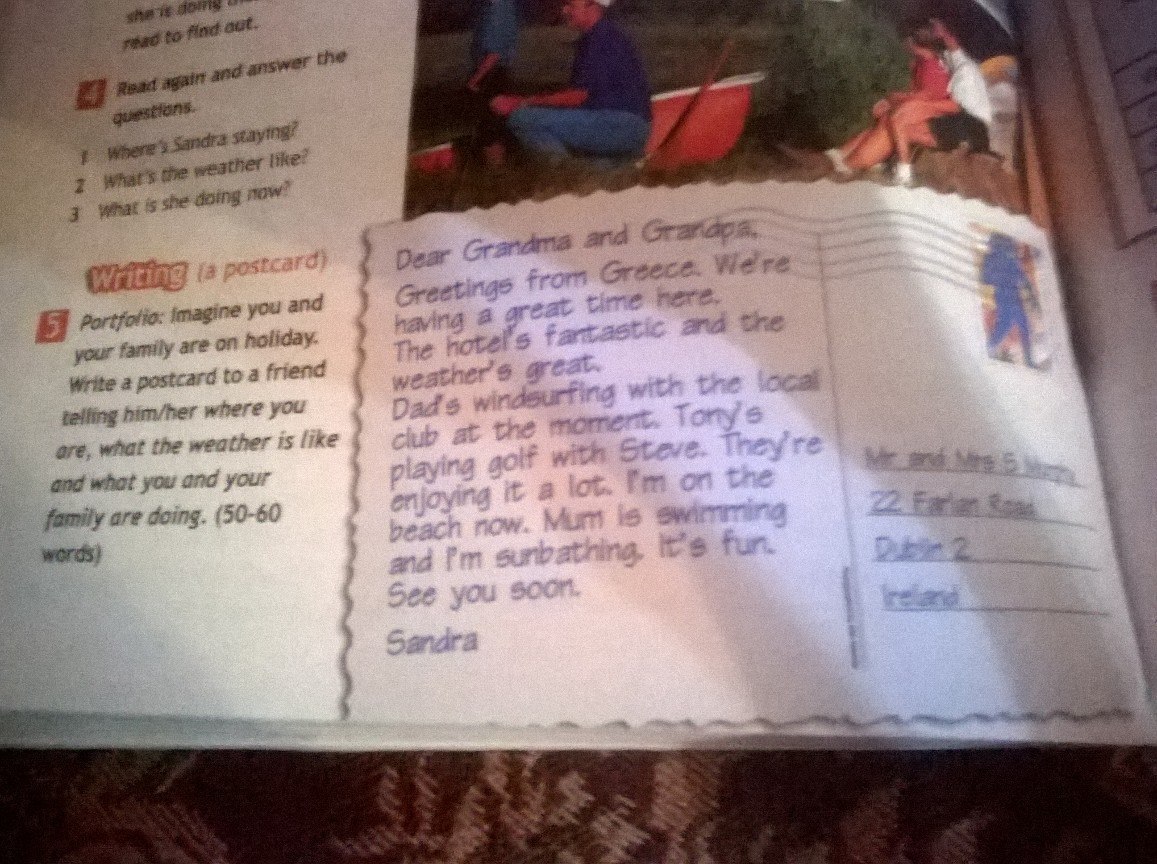 she is doing
read to find out.
4 Read again and answer the
questions.
1 Where's Sandra staying?
2 What's the weather like?
3 What is she doing now?
Writing (a postcard)
5 Portfolio: Imagine you and
your family are on holiday.
Write a postcard to a friend
telling him/her where you
are, what the weather is like
and what you and your
family are doing. (50-60
words)
Dear Grandma and Grandpa,
Greetings from Greece. We're
having a great time here.
The hotel's fantastic and the
weather's great.
Dad's windsurfing with the local
club at the moment. Tony's
playing golf with Steve. They're
enjoying it a lot. I'm on the
beach now. Mum is swimming
and I'm sunbathing. It's fun.
See you soon.
Sandra
Mr and Mrs S
22 Road
Dublin 2
Ireland